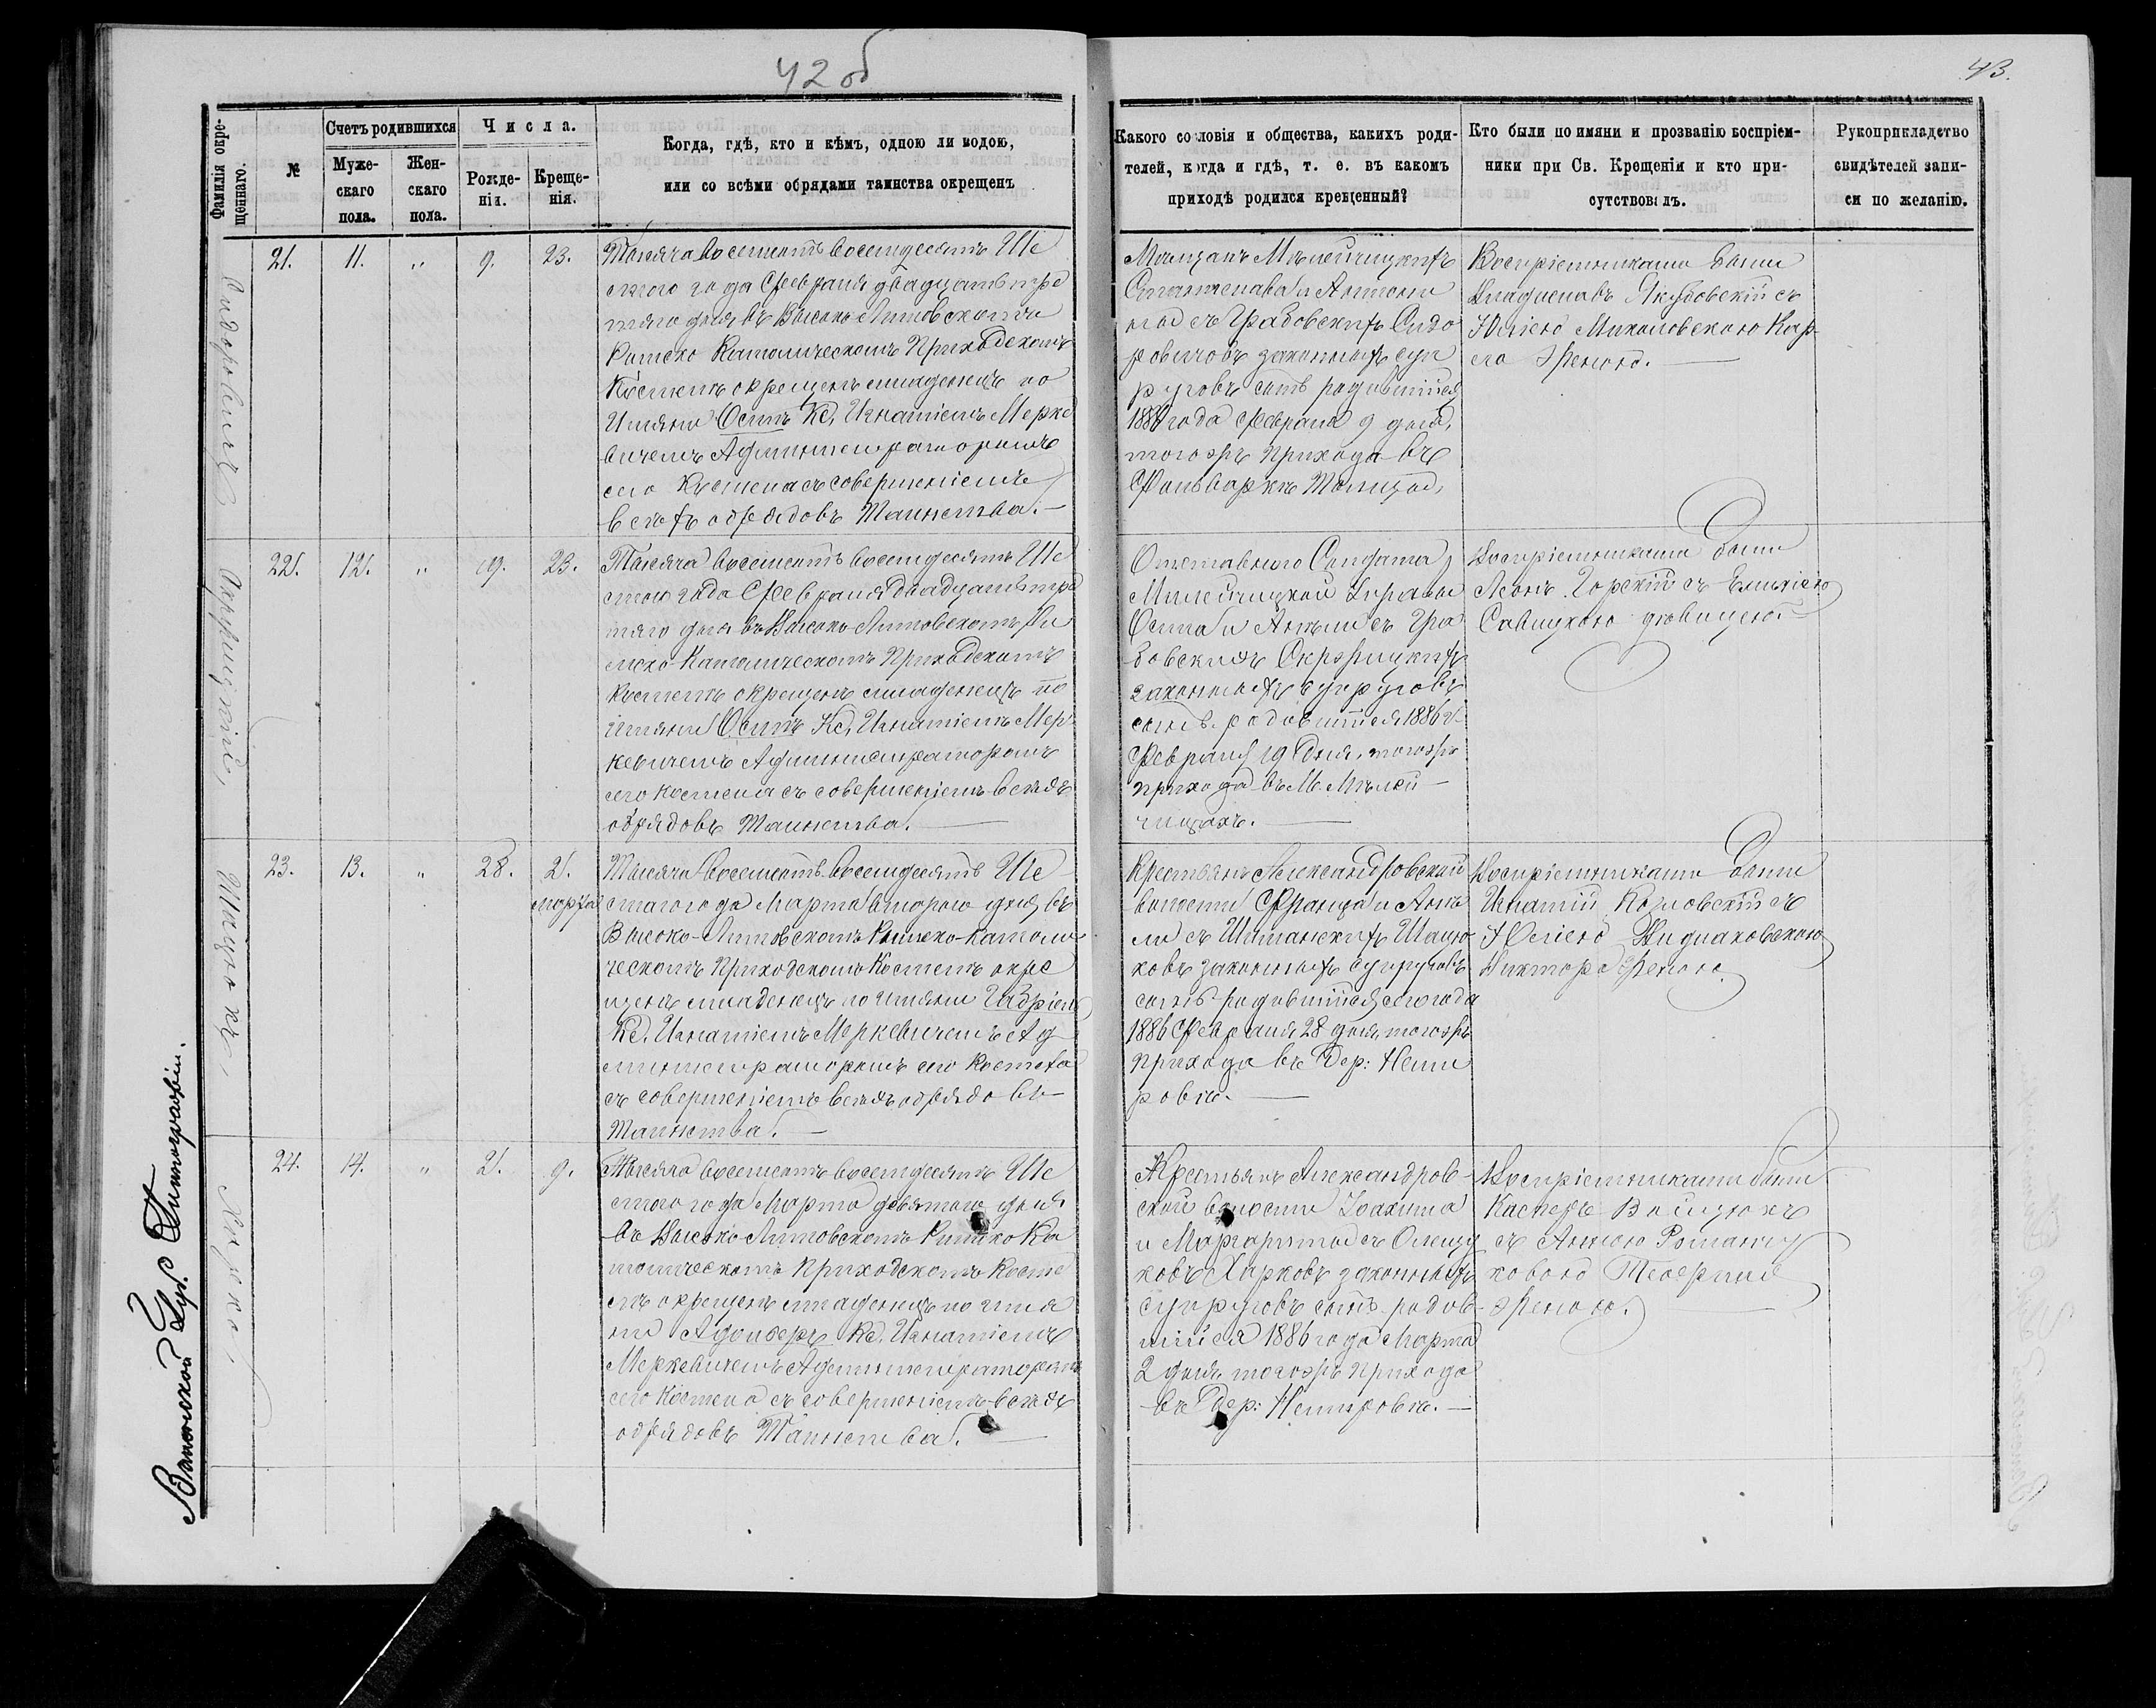 42 об
43.
Фамилія окре-
щеннаго.
№
Счетъ родившихся
Муже-
скаго
пола.
Жен-
скаго
пола.
Числа.
Рожде-
нія.
Креще-
нія.
Когда, гдѣ, кто и кѣмъ, одною ли водою,
или со всѣми обрядами таинства окрещенъ
Какого сословія и общества, какихъ роди-
телей, когда и гдѣ, т. е. въ какомъ
приходѣ родился крещенный?
Кто были по имяни и прозванію воспріем-
ники при Св. Крещеніи и кто при-
сутствовалъ.
Рукоприкладство
свидѣтелей запи-
си по желанію.
Сидоровичъ
21.
11.
"
9.
23.
Тысяча восемьсотъ восемьдесятъ Ше
стаго года Февраля двадцать тре
тяго дня въ Высоко-Литовскомъ
Римско Католическомъ Приходскомъ
Костелѣ окрещенъ младенецъ по
Имяни Осипъ Кс. Игнатіемъ Мерке
вичемъ Администраторомъ
сего Костела съ совершеніемъ
всѣхъ обрядовъ Таинства.
Мѣщанъ Милейчицкихъ
Станислава и Антони
ны съ Грабовскихъ Сидо
ровичовъ законныхъ суп
руговъ сынъ родившійся
1886 года Февраля 9 дня,
тогожъ прихода въ
Фольваркѣ
Воспріемниками были
Владиславъ Якубовскій съ
Юліею Михаловскою Кар-
ла женою.
22.
12.
"
19.
23.
Тысяча восемьсотъ восемьдесятъ Ше
стаго года Февраля двадцать тре
тяго дня въ Высоко-Литовскомъ Ри
мско-Католическомъ Приходскомъ
Костелѣ окрещенъ младенецъ по
имяни Осипъ Кс. Игнатіемъ Мер-
кевичемъ Администраторомъ
сего Костела съ совершеніемъ всѣхъ
обрядовъ Таинства.
Отставного Солдата
Милейчицкой Управы
Осипа и Анны съ Гра
бовскихъ
законныхъ супруговъ
сынъ родившійся 1886 г.
Февраля 19 дня, тогожъ
прихода въ М. Милей-
чицахъ.
Воспріемниками были
Леонъ Горскій съ Емиліею
Савицкою дѣвицею.
Шацюкъ.
23.
13.
"
28.
2.
марта
Тысяча восемьсотъ восемьдесятъ Ше
стаго года Марта второго дня въ
Высоко-Литовскомъ Римско-Католи
ческомъ Приходскомъ Костелѣ окре
щенъ младенецъ по имяни Габріель
Кс. Игнатіемъ Меркевичемъ Ад
министраторомъ сего Костела
съ совершеніемъ всѣхъ обрядовъ
Таинства.
Крестьянъ Александровской
волости Франца и Ане
ли съ Шиманскихъ Шацю
ковъ законныхъ супруговъ
сынъ родившійся сего года
1886 Февраля 28 дня, тогожъ
прихода въ дер: Неми
ровкѣ.
Воспріемниками были
Игнатій Козловскій съ
Юліею
Виктора женою
24.
14.
"
2.
9.
Тысяча восемьсотъ восемьдесятъ Ше
стаго года Марта девятого дня
въ Высоко Литовскомъ Римско Ка
толическомъ Приходскомъ Косте
лѣ окрещенъ младенецъ по имя
ни Адольфъ Кс. Игнатіемъ
Меркевичемъ Администраторомъ
сего Костела съ совершеніемъ всѣхъ
обрядовъ Таинства.
Крестьянъ Александров-
ской волости Іоахима
и Маргариты съ
законныхъ
супруговъ сынъ родив-
шійся 1886 года Марта
2 дня тогожъ прихода
въ дер: Немировкѣ.
Воспріемниками были
Касперъ Войцюкъ
съ Анною Роман
ковою
женою.
Виленской Губ. Типографіи.